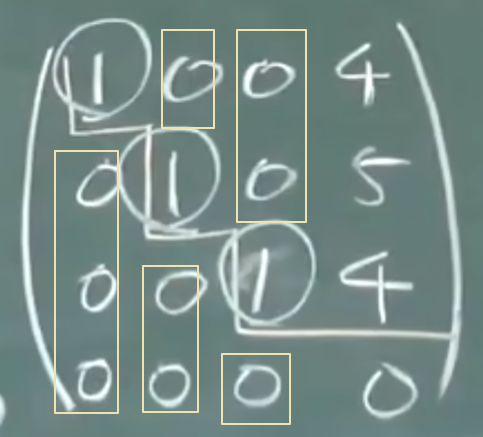 1 0 0 4
0 1 0 5
0 0 1 4
0 0 0 0